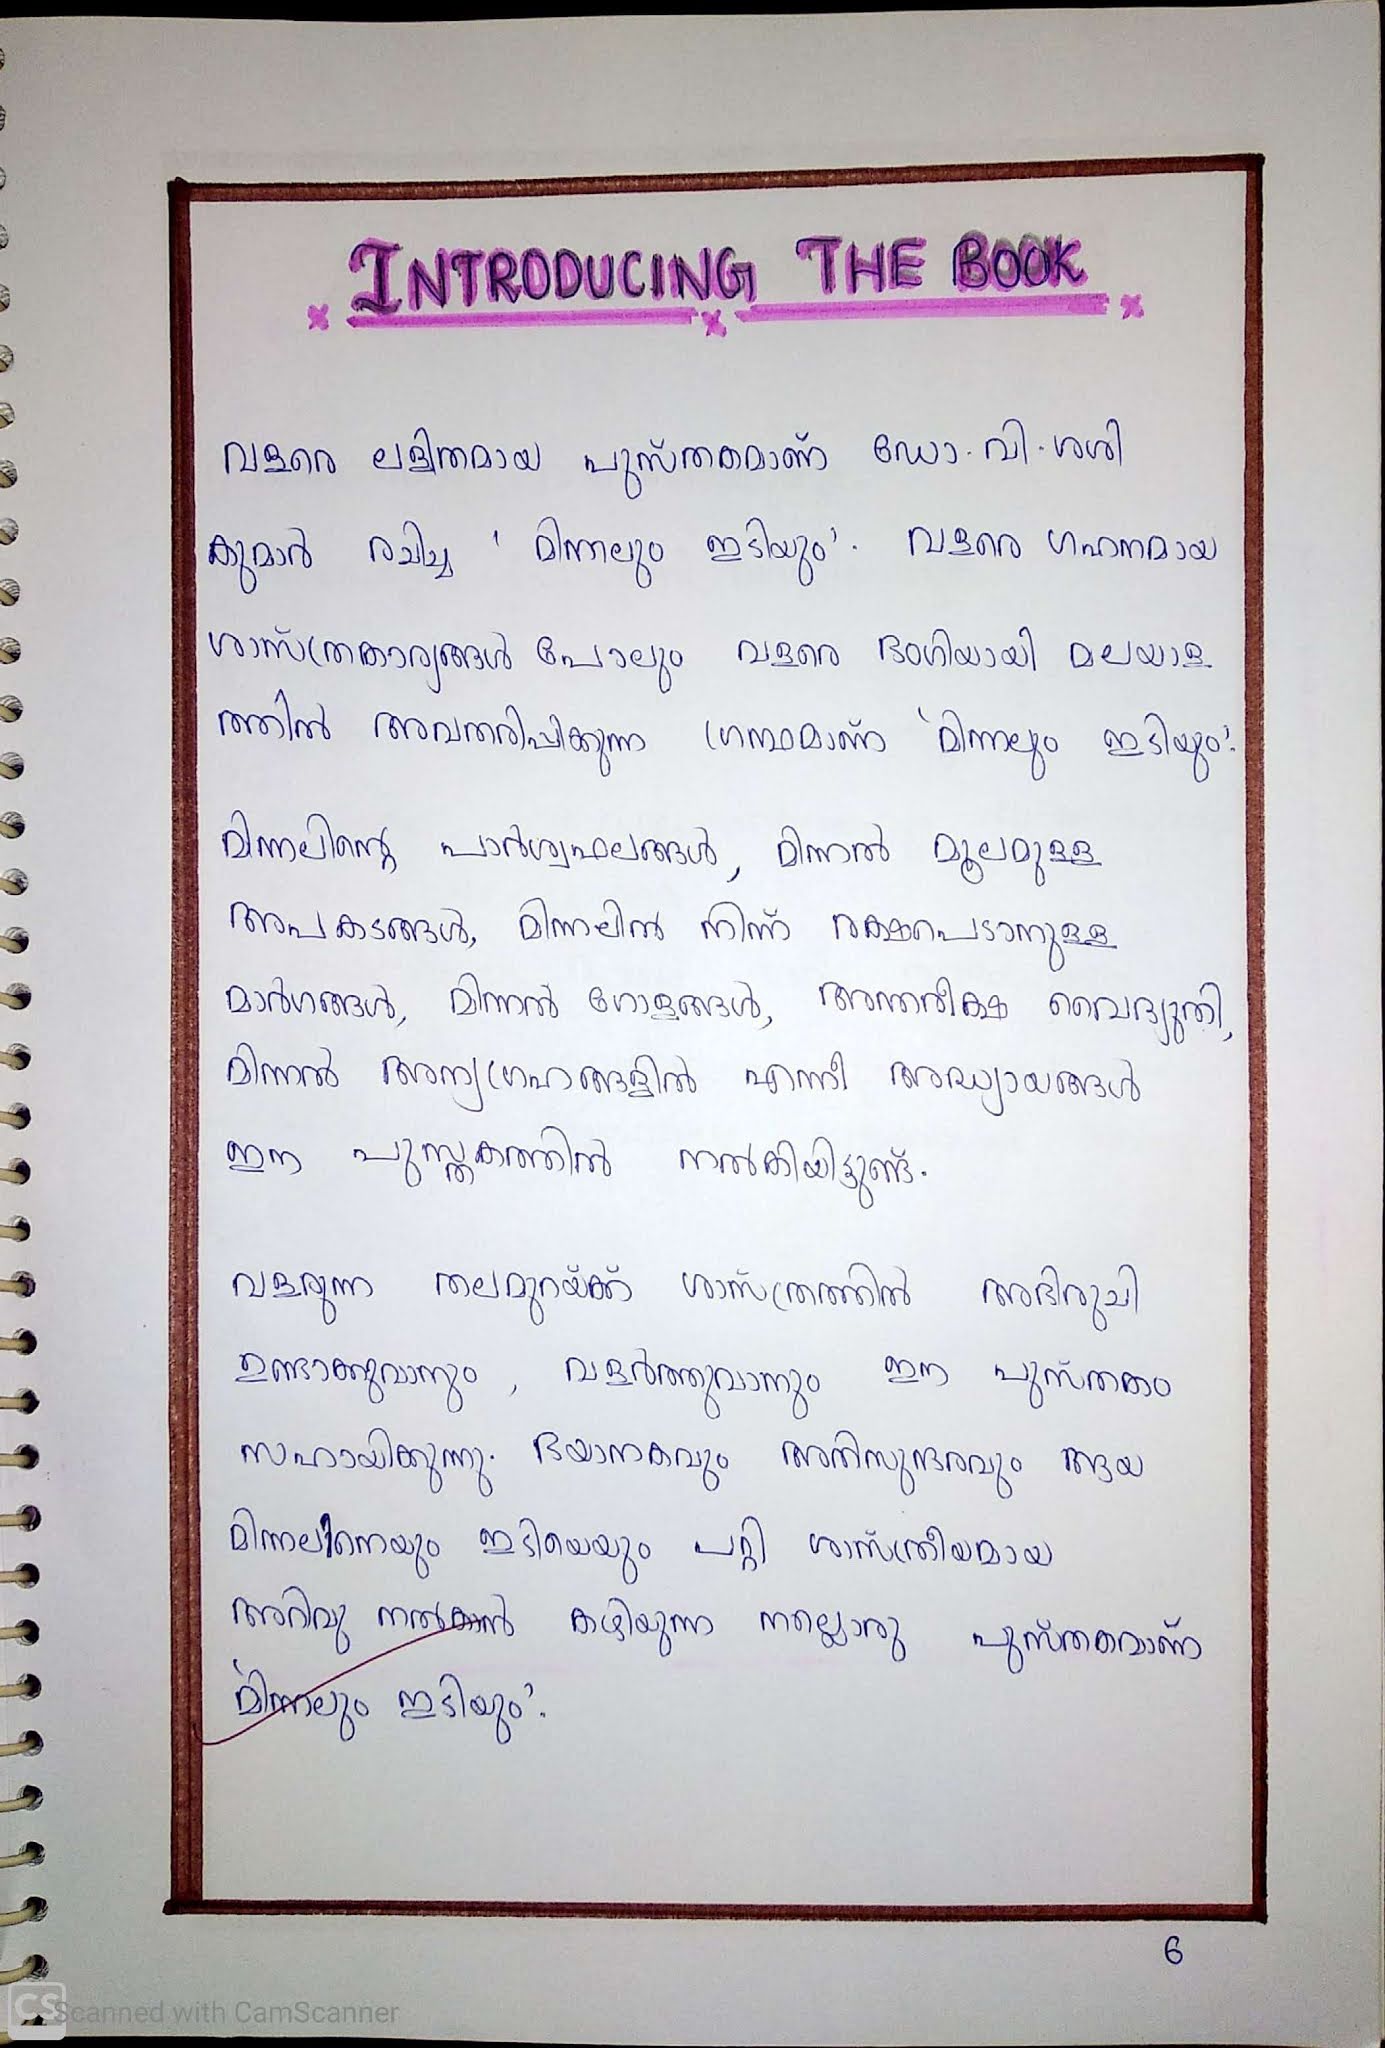 INTRODUCING THE BOOK
വളരെ ലളിതമായ പുസ്തകമാണ് ഡോ. വി. ശശി
കുമാർ രചിച്ച ' മിന്നലും ഇടിയും'. വളരെ ഗഹനമായ
ശാസ്ത്രകാര്യങ്ങൾ പോലും വളരെ ഭംഗിയായി മലയാള
ത്തിൽ അവതരിപ്പിക്കുന്ന ഗ്രന്ഥമാണ് 'മിന്നലും ഇടിയും'.
മിന്നലിന്റെ പാർശ്വഫലങ്ങൾ, മിന്നൽ മൂലമുള്ള
അപകടങ്ങൾ, മിന്നലിൽ നിന്ന് രക്ഷപെടാനുള്ള
മാർഗങ്ങൾ, മിന്നൽ ഗോളങ്ങൾ, അന്തരീക്ഷ വൈദ്യുതി,
മിന്നൽ അന്യഗ്രഹങ്ങളിൽ എന്നീ അദ്ധ്യായങ്ങൾ
ഈ പുസ്തകത്തിൽ നൽകിയിട്ടുണ്ട്.
വളരുന്ന തലമുറയ്ക്ക് ശാസ്ത്രത്തിൽ അഭിരുചി
ഉണ്ടാക്കുവാനും, വളർത്തുവാനും ഈ പുസ്തകം
സഹായിക്കുന്നു. ഭയാനകവും അതിസുന്ദരവും ആയ
മിന്നലിനെയും ഇടിയെയും പറ്റി ശാസ്ത്രീയമായ
അറിവു നൽകാൻ കഴിയുന്ന നല്ലൊരു പുസ്തകവാണ്
'മിന്നലും ഇടിയും'.
6
CS Scanned with CamScanner